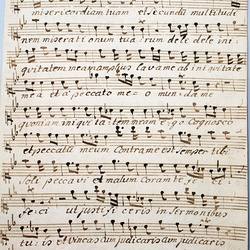 misericordiam tuam et secundu multitudi
nem miserationum tuarum dele dele ini
quitatem meam amplius lava me ab iniquitate
mea et a peccato meo munda me
quoniam iniquitatem meam ego Cognosco
et peccatu meum Contra me est semper tibi
soli peccavi et malum coram te feci et
feci ut justificeris in Sermonibus
tuis et Vincas cum judicaris cum judicaris